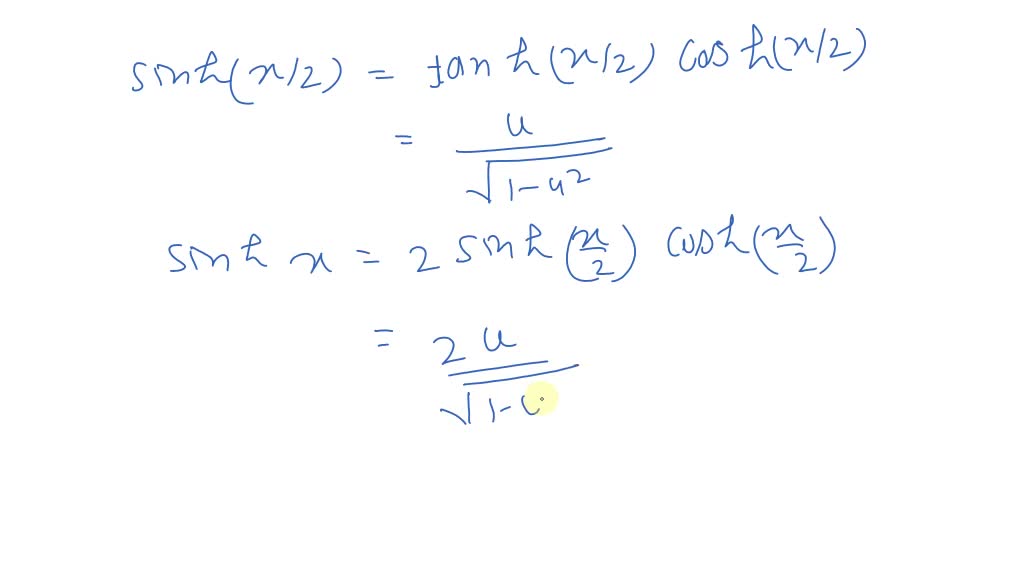 sinh(x/2) = tanh(x/2) cosh(x/2)
= u/√(1-u²)
sinh x = 2 sinh(x/2) cosh(x/2)
= 2u/√(1-u